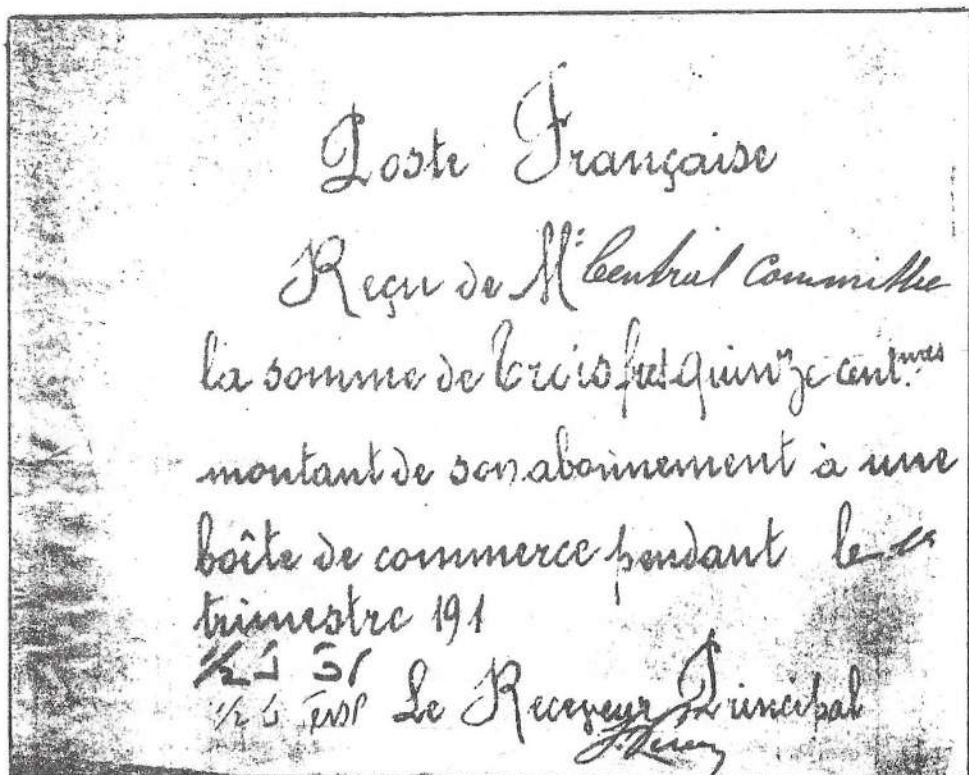 Poste Française
Reçu de M.: Central Committee
la somme de trois frcs quinze cent.mes
montant de son abonnement à une
boîte de commerce pendant le 1er
trimestre 191
Le Receveur Principal